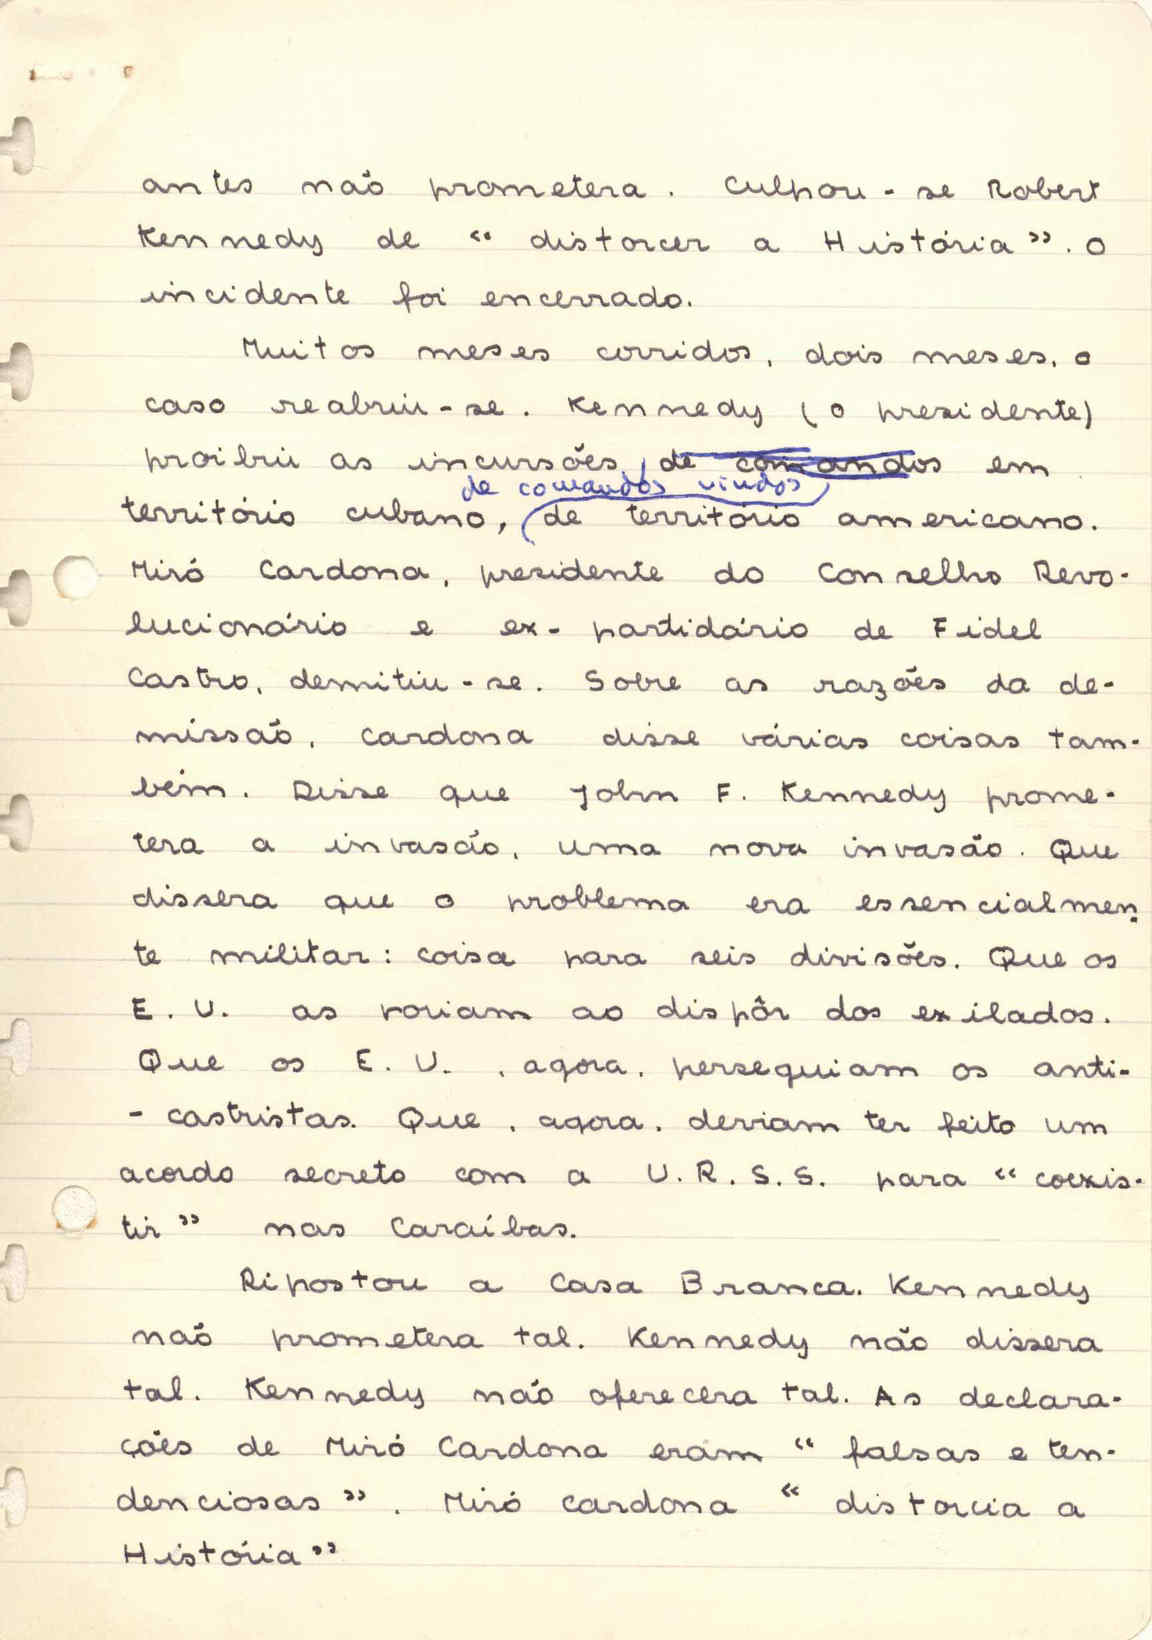 antes não prometera. Culpou-se Robert
Kennedy de “distorcer a História”. O
incidente foi encerrado.
Muitos meses corridos, dois meses, o
caso reabriu-se. Kennedy (o presidente)
proibiu as incursões, de comandos em
de comandos vindos
território cubano, de território americano.
Miró Cardona, presidente do Conselho Revo-
lucionário e ex-partidário de Fidel
Castro, demitiu-se. Sobre as razões da de-
missão, Cardona disse várias coisas tam-
bém. Disse que John F. Kennedy prome-
tera a invasão, uma nova invasão. Que
dissera que o problema era essencialmen-
te militar: coisa para seis divisões. Que os
E. U. as poriam ao dispôr dos exilados.
Que os E. U., agora, perseguiam os anti-
-castristas. Que, agora, deviam ter feito um
acordo secreto com a U.R.S.S. para “coexis-
tir” nas Caraíbas.
Ripostou a Casa Branca. Kennedy
não prometera tal. Kennedy não dissera
tal. Kennedy não oferecera tal. As declara-
ções de Miró Cardona eram “falsas e ten-
denciosas”. Miró Cardona “distorcia a
História”